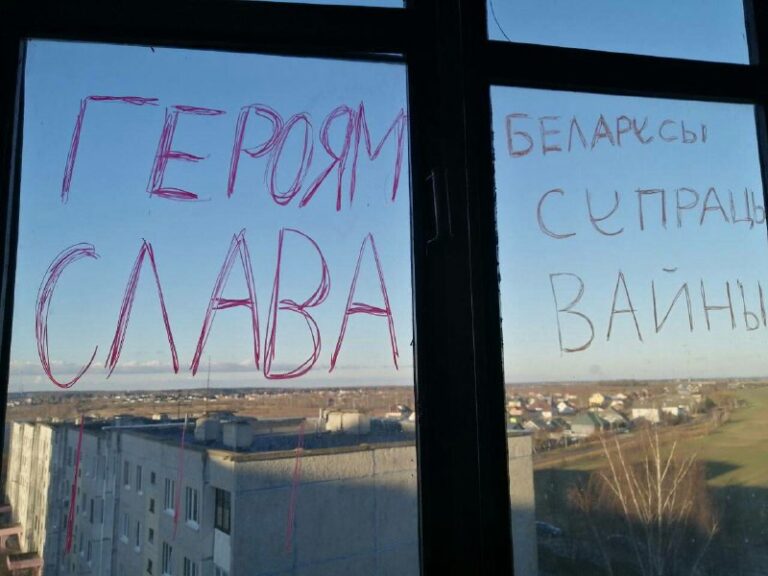 ГЕРОЯМ
СЛАВА
БЕЛАРУСЫ
СУПРАЦЬ
ВАЙНЫ